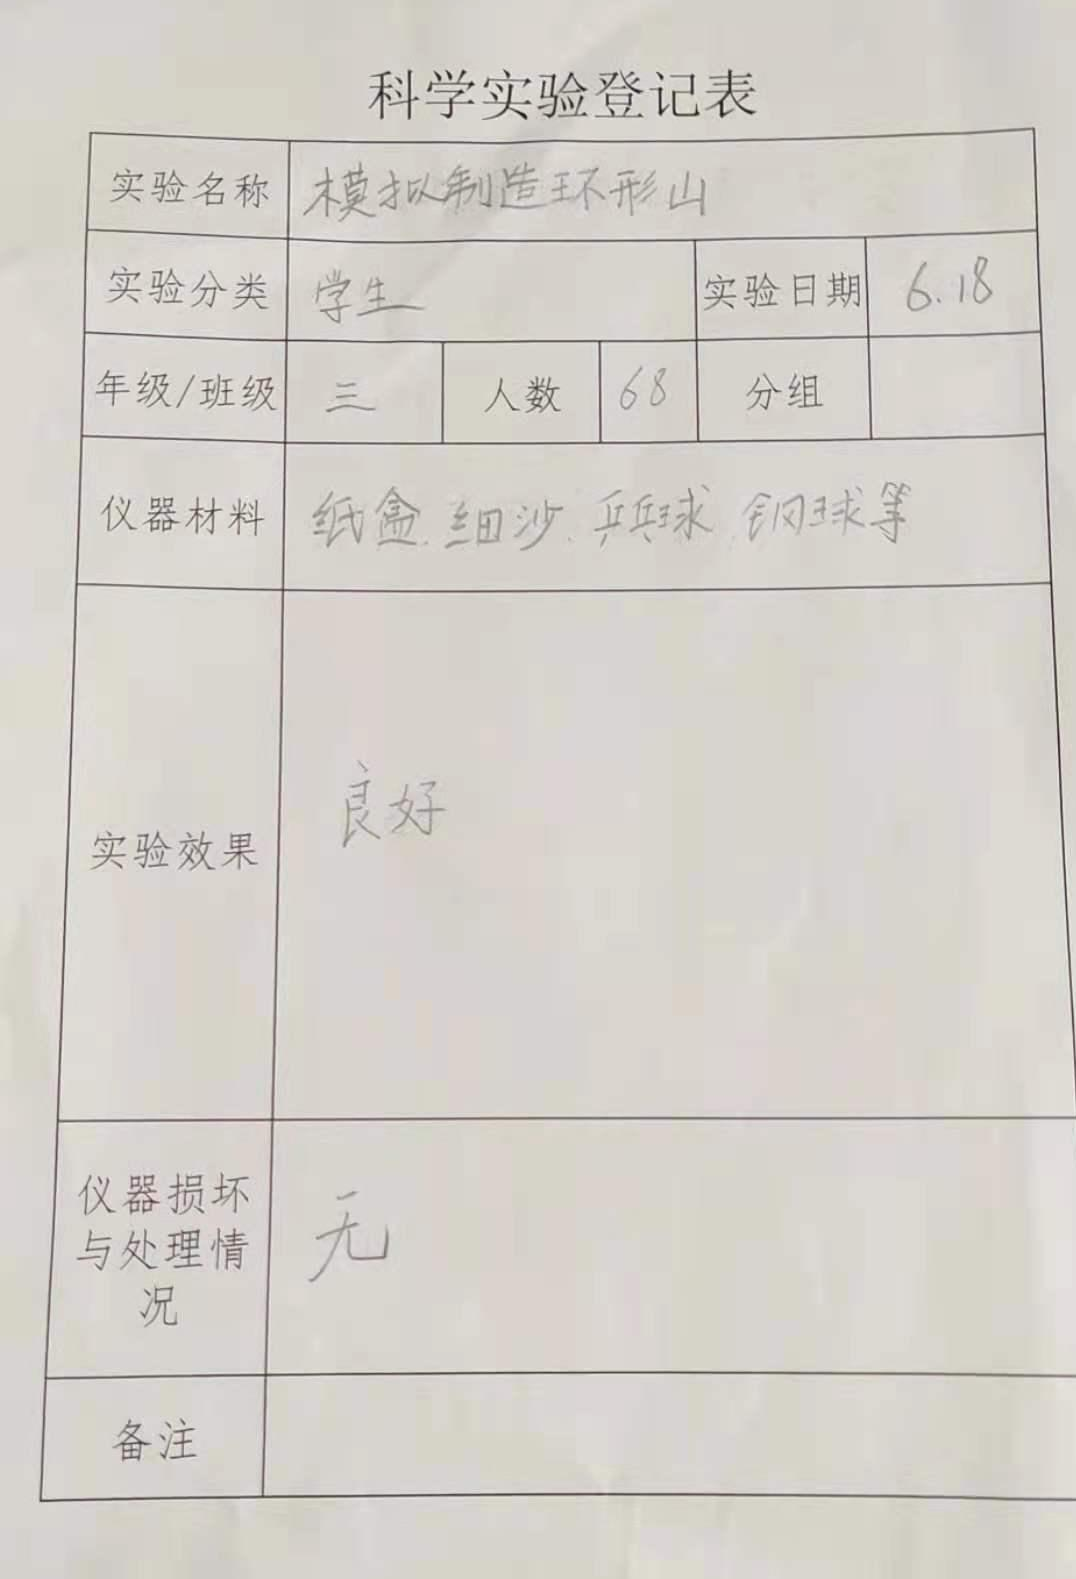 科学实验登记表
实验名称 模拟制造环形山
实验分类 学生 实验日期 6.18
年级/班级 三 人数 68 分组
仪器材料 纸盒.细沙.乒乓球.钢球等
实验效果 良好
仪器损坏
与处理情
况
无
备注